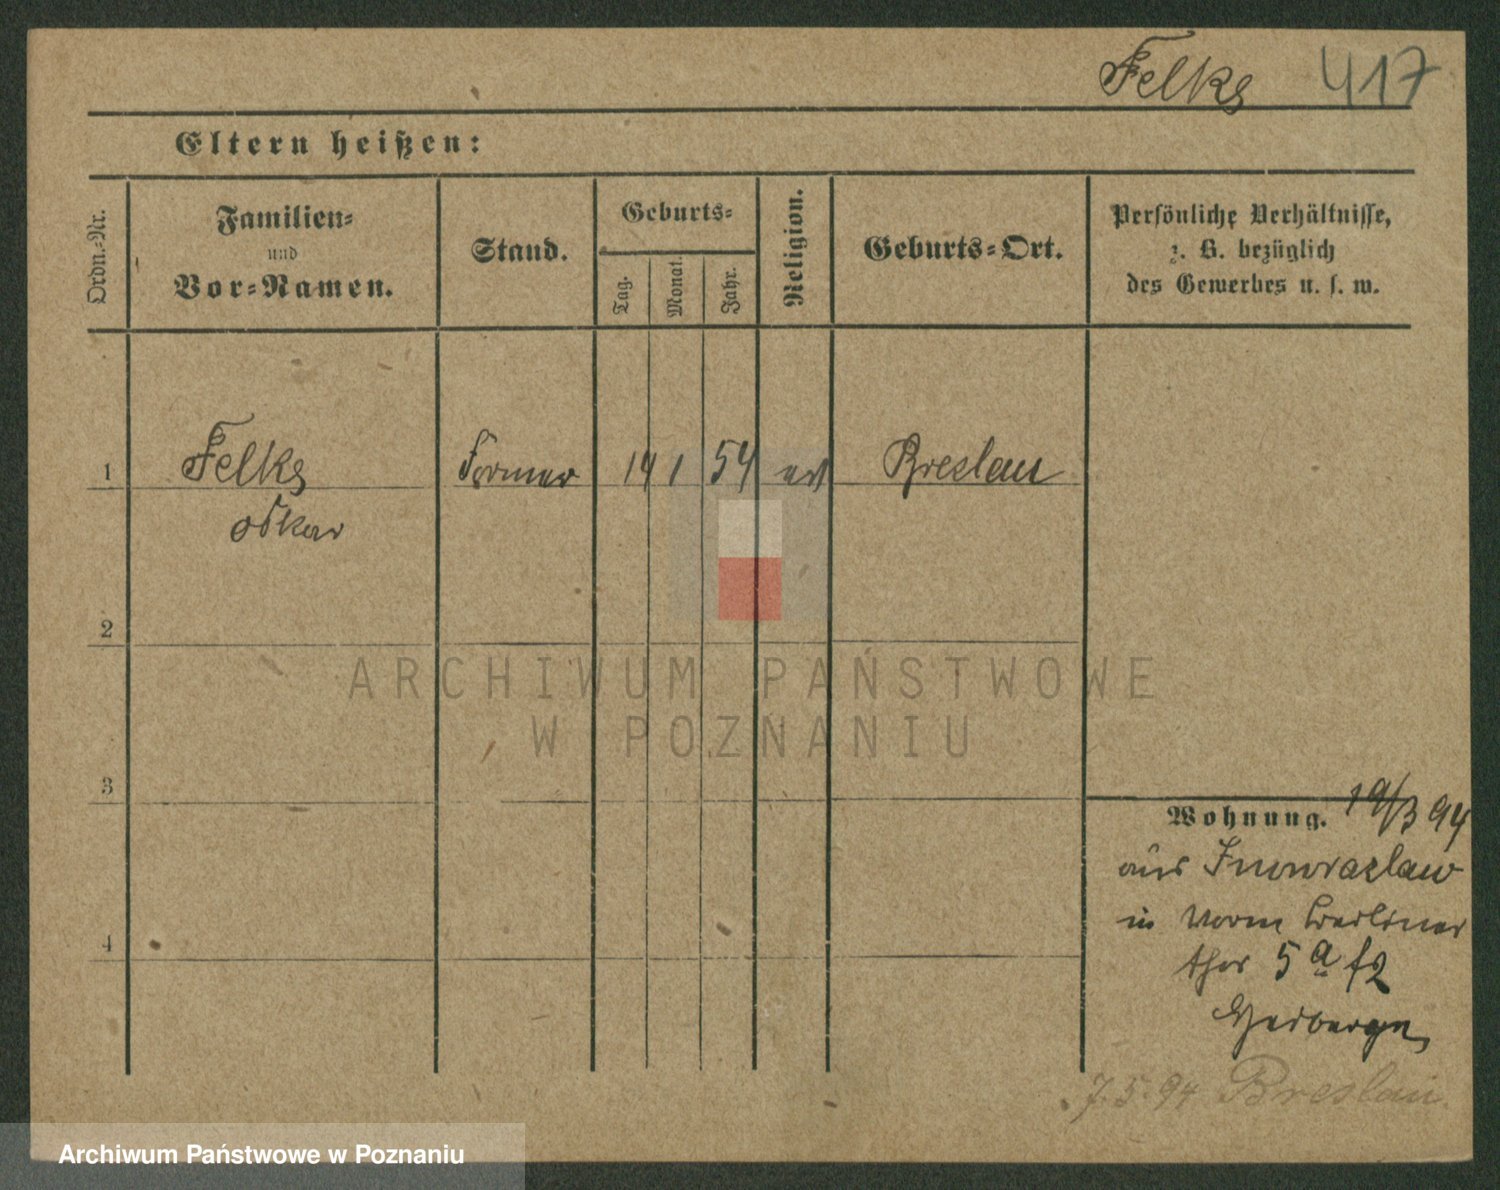 Felks 417
Eltern heißen:
Ordn.-Nr.
Familien-
und
Vor-Namen.
Stand.
Geburts-
Tag.
Monat.
Jahr.
Religion.
Geburts-Ort.
Persönliche Verhältnisse,
z. B. bezüglich
des Gewerbes u. s. w.
1 Felks Former 14 1 54 ev Breslau
Oskar
2
ARCHIWUM PAŃSTWOWE
W POZNANIU
3
Wohnung. 19/3 94
aus Inowrazlaw
in vorm Berliner
4
thor 5a
Herberge
7.5.94 Breslau
Archiwum Państwowe w Poznaniu